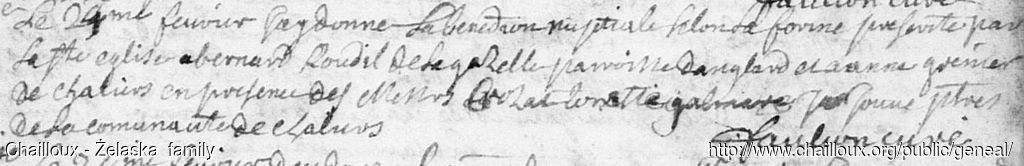 Le 24me fevrier j'ay donné la benediction nuptiale selon la forme prescrite par
la ste eglise a bernard Roudil de la gazelle parroisse danglard et a anne grenier
de chaliers en presence des Messrs galmare ptres
de la comunauté de chaliers
faulcon curé
Chailloux - Želaska family
http://www.chailloux.org/public/geneal/